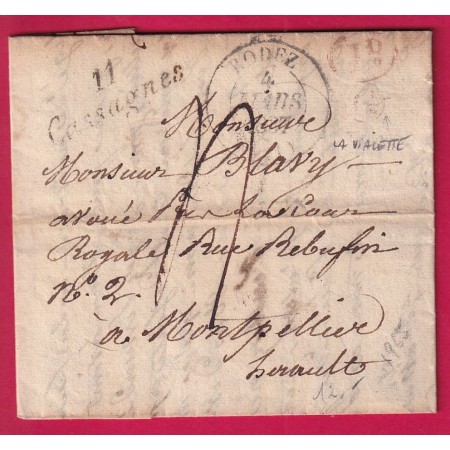 11
Cassagnes
RODEZ
4
MARS
1D
LA VIALETTE
Monsieur
Monsieur Blavy
avoué Par La Cour
Royale Rue Rebuffin
N.º 2.
à Montpellier
herault
12.